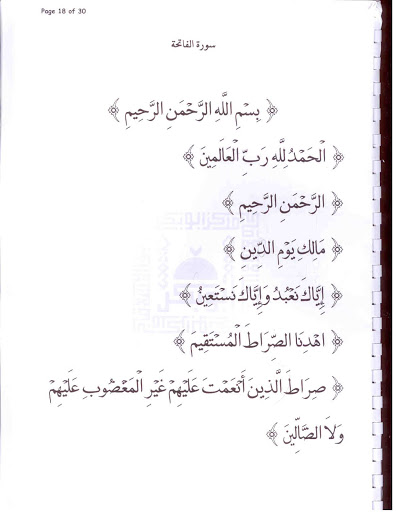 Page 18 of 30
سورة الفاتحة
﴿ بِسْمِ اللَّهِ الرَّحْمَنِ الرَّحِيمِ ﴾
﴿ الْحَمْدُ لِلَّهِ رَبِّ الْعَالَمِينَ ﴾
﴿ الرَّحْمَنِ الرَّحِيمِ ﴾
﴿ مَالِكِ يَوْمِ الدِّينِ ﴾
﴿ إِيَّاكَ نَعْبُدُ وَإِيَّاكَ نَسْتَعِينُ ﴾
﴿ اهْدِنَا الصِّرَاطَ الْمُسْتَقِيمَ ﴾
﴿ صِرَاطَ الَّذِينَ أَنْعَمْتَ عَلَيْهِمْ غَيْرِ الْمَغْضُوبِ عَلَيْهِمْ
وَلَا الضَّالِّينَ ﴾